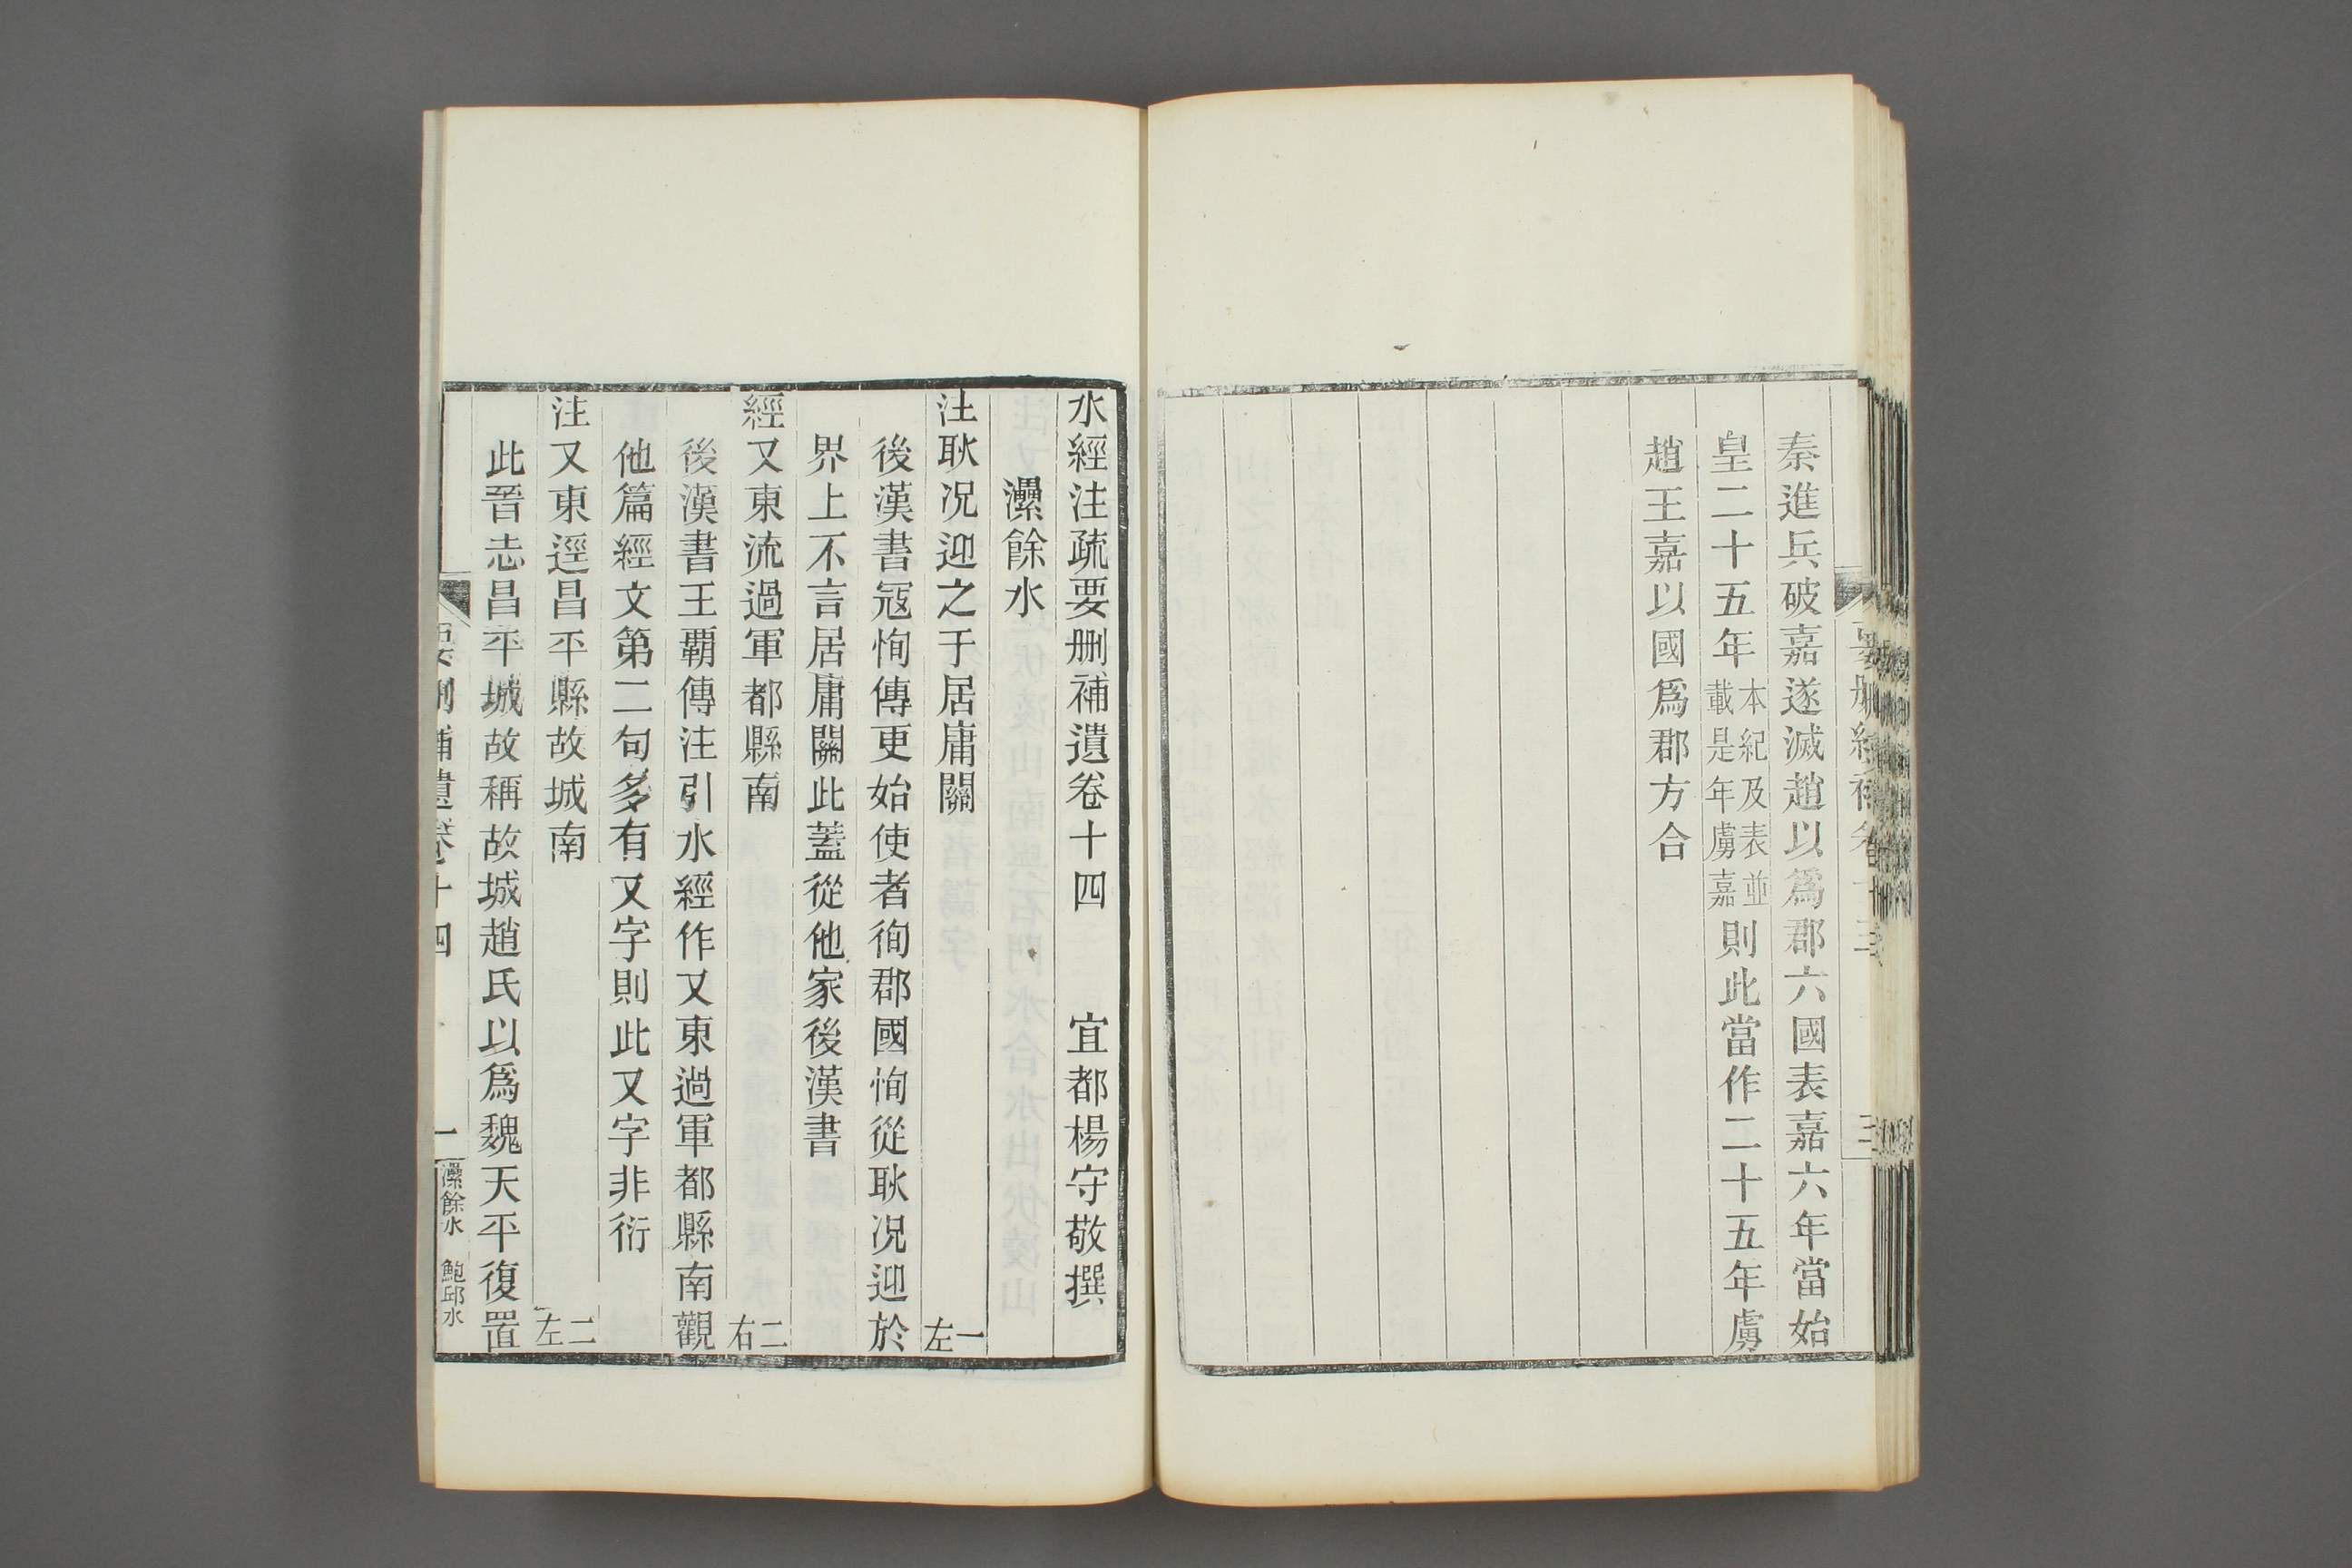 秦進兵破嘉遂滅趙以爲郡六國表嘉六年當始
皇二十五年本紀及表並載是年虜嘉則此當作二十五年虜
趙王嘉以國爲郡方合
水經注疏要删補遺卷十四 宜都楊守敬撰
㶟餘水
注耿况迎之于居庸關 一左
後漢書寇恂傳更始使者徇郡國恂從耿况迎於
界上不言居庸關此蓋從他家後漢書
經又東流過軍都縣南 二右
後漢書王霸傳注引水經作又東過軍都縣南觀
他篇經文第二句多有又字則此又字非衍
注又東逕昌平縣故城南 二左
此晉志昌平城故稱故城趙氏以爲魏天平復置
要删補遺卷十四 一 㶟餘水 鮑邱水